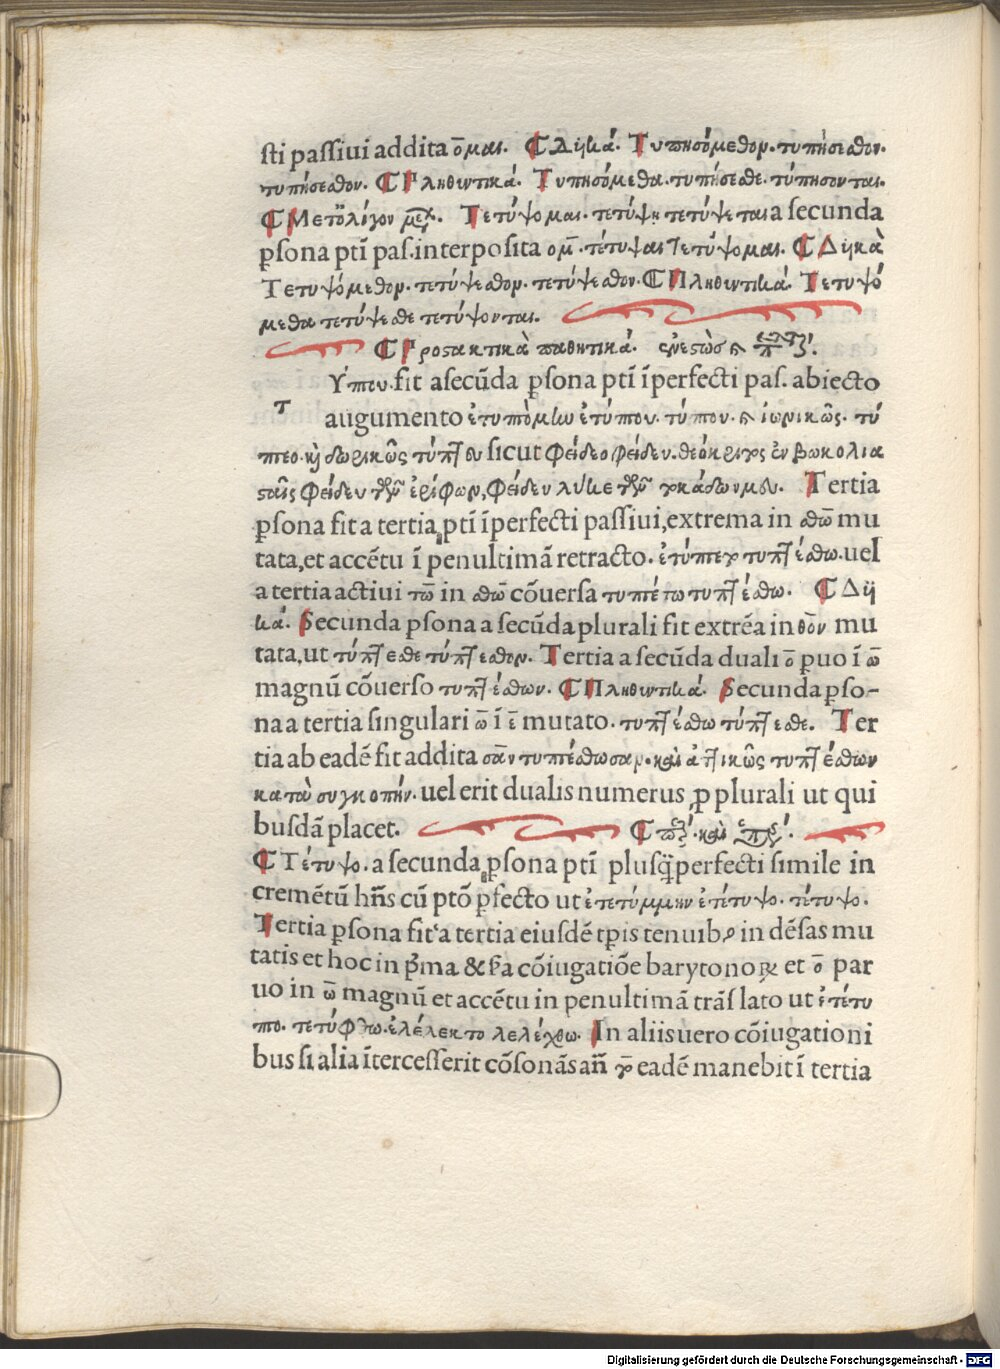 sti passiui addita ο̄μαι. ¶Δϊικά. Τυπησόμεθον. τυπήσεσθον.
τυπήσεσθον. ¶Πληθιντικά. Τυπησόμεθα. τυπήσεσθε. τύπησονται.
¶Μετ᾽ὀλίγον μελ̄. Τετύψομαι. τετύψῃ τετύψεται a secunda
ꝑsona ptī pas. interposita ομ̄. τέτυψαι Τετύψομαι. ¶Δϊικὰ
Τετυψόμεθον. τετύψεσθον. τετύψεσθον. ¶Πληθιντικά. Τετυψό
μεθα τετύψεσθε τετύψονται.
¶Προστακτικὰ παθητικά. ἐνεστὼσ
Ύπου. fit a secūda ꝑsona ptī īperfecti pas. abiecto
τ augumento ἐτυπτόμην ἐτύπου. τύπου. ἰωνικῶς. τύ
πτεο. κὶ δωρικῶς τύπτευ sicut φείδεο φείδευ. θεόκριτος ἐν βωκολια
σταῖς φείδευ τῶν ἐρίφων, φείδευ λύκε τῶν τοκάδων μου. Tertia
ꝑsona fit a tertia ptī īperfecti passiui, extrema in σθω̄ mu
tata, et accētu ī penultimā retracto. ἐτύπτετο τυπτέσθω. uel
a tertia actiui τω̄ in σθω̄ cōuersa τυπτέτω τυπτέσθω. ¶Δϊι
κά. Secunda ꝑsona a secūda plurali fit extrēa in θο̄ν mu
tata, ut τύπτεσθε τύπτεσθον. Tertia a secūda duali ο̄ ꝑuo ī ω̄
magnū cōuerso τυπτέσθων. ¶Πληθιντικά. Secunda ꝑso-
na a tertia singulari ω̄ ī ε̄ mutato. τυπτέσθω τύπτεσθε. Ter
tia ab eadē fit addita σᾱν τυπτέσθωσαν. καὶ ἀττικῶς τυπτέσθων
κατὰ συγκοπήν. uel erit dualis numerus ꝓ plurali ut qui
busdā placet.
¶Τέτυψο. a secunda ꝑsona ptī plusq̄ꝑfecti simile in
cremētū hn̄s cū ptō ꝑfecto ut ἐτετύμμην ἐτέτυψο. τέτυψο.
Tertia ꝑsona fit a tertia eiusdē tꝑis tenuibꝰ in dēsas mu
tatis et hoc in pͥma & ẜa cōiugatiōe barytonoꝝ et ο̄ par
uo in ω̄ magnū et accētu in penultimā trāslato ut ἐτέτυ
πτο. τετύφθω. ἐλέλεκτο λελέχθω. In aliis uero cōiugationi
bus si alia ītercesserit cōsonās an̄ το̄ eadē manebit ī tertia
Digitalisierung gefördert durch die Deutsche Forschungsgemeinschaft - DFG